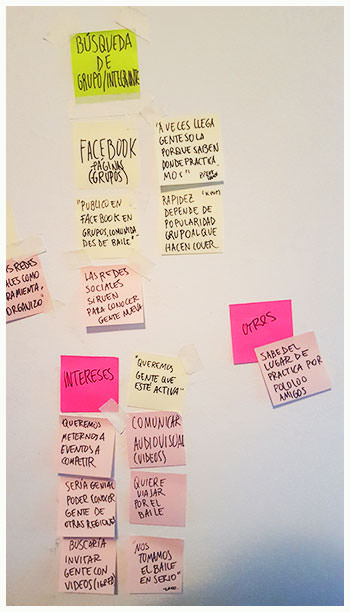 BÚSQUEDA
DE
GRUPO/INTEGRANTE
FACEBOOK
-PÁGINAS
(GRUPOS)
"A VECES LLEGA
GENTE SOLA
PORQUE SABEN
DONDE PRACTICA
MOS"
"PUBLICO EN
FACEBOOK EN
GRUPOS, COMUNIDA
DES DE BAILE"
RAPIDEZ
DEPENDE DE
POPULARIDAD
GRUPO AL QUE
HACEN COVER
REDES
COMO
ORGANIZO
LAS REDES
SOCIALES
SIRVEN
PARA CONOCER
GENTE NUEVA
OTROS
SABE DEL
LUGAR DE
PRACTICA POR
POLOLO O
AMIGOS
INTERESES
"QUEREMOS
GENTE QUE
ESTÉ ACTIVA"
QUEREMOS
METERNOS A
EVENTOS A
COMPETIR
COMUNICAR
AUDIOVISUAL
(VIDEOS)
SERÍA GENIAL
PODER CONOCER
GENTE DE
OTRAS REGIONES
QUIERE
VIAJAR
POR EL
BAILE
BUSCARÍA
INVITAR
GENTE CON
VIDEOS
"NOS
TOMAMOS
EL BAILE
EN SERIO"